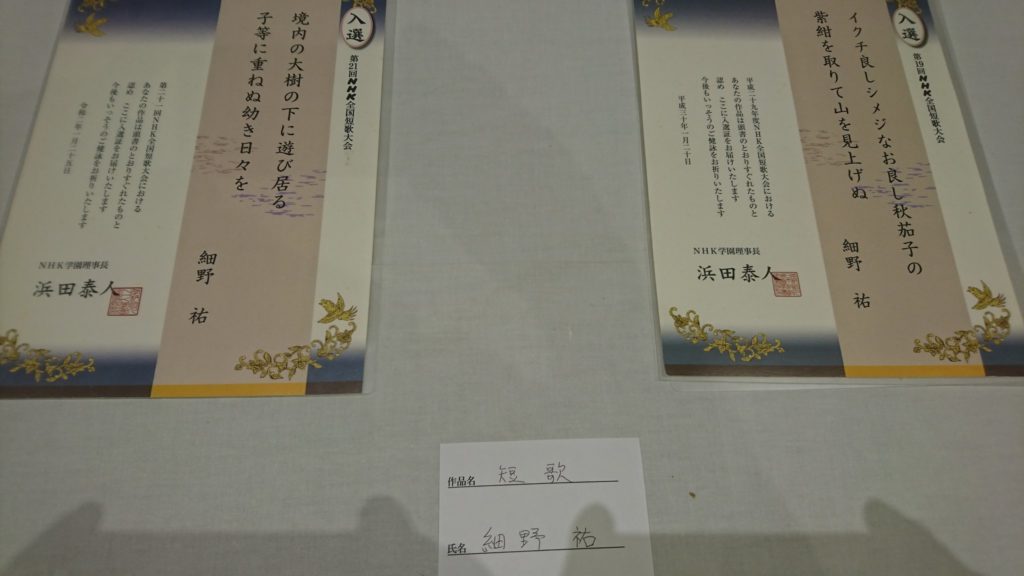 入選
第19回NHK全国短歌大会
イクチ良しシメジなお良し秋茄子の
紫紺を取りて山を見上げぬ
細野 祐
平成二十九年度NHK全国短歌大会における
あなたの作品は頭書のとおりすぐれたものと
認め ここに入選証をお届けいたします
今後もいっそうのご健詠をお祈りいたします
平成三十年一月二十日
NHK学園理事長
浜田泰人
入選
第21回NHK全国短歌大会
境内の大樹の下に遊び居る
子等に重ねぬ幼き日々を
細野 祐
第二十一回NHK全国短歌大会における
あなたの作品は頭書のとおりすぐれたものと
認め ここに入選証をお届けいたします
今後もいっそうのご健詠をお祈りいたします
令和二年一月二十五日
NHK学園理事長
浜田泰人
作品名 短歌
氏名 細野 祐